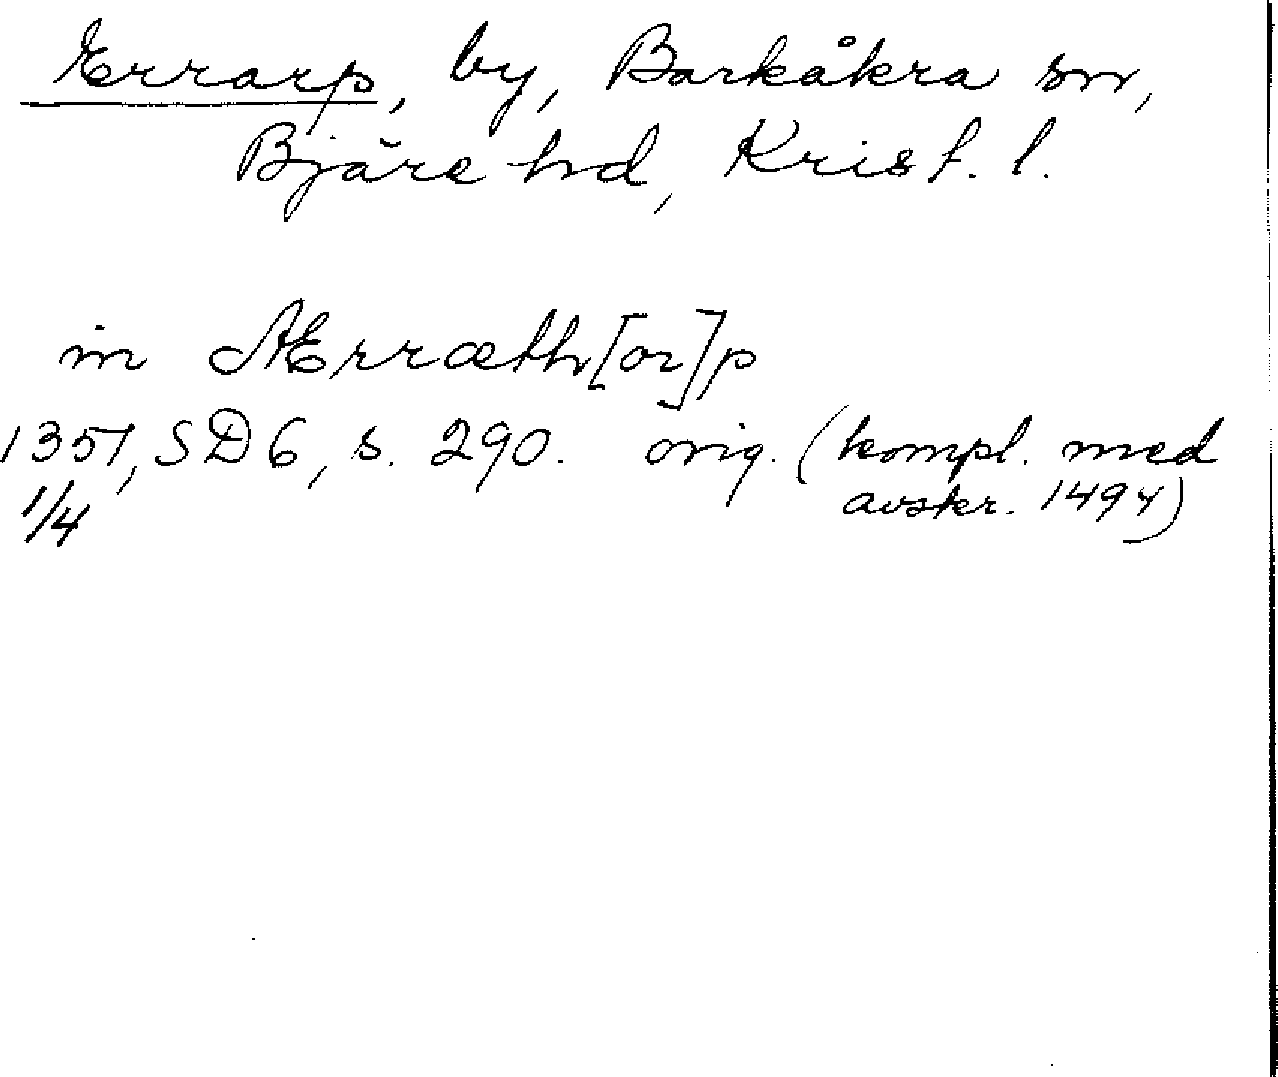 Errarp, by, Barkåkra sn,
Bjäre hd, Krist. l.
in Ærræth[or]p
1351, SD 6, s. 290. orig. (kompl. med
1/4 avskr. 1494)